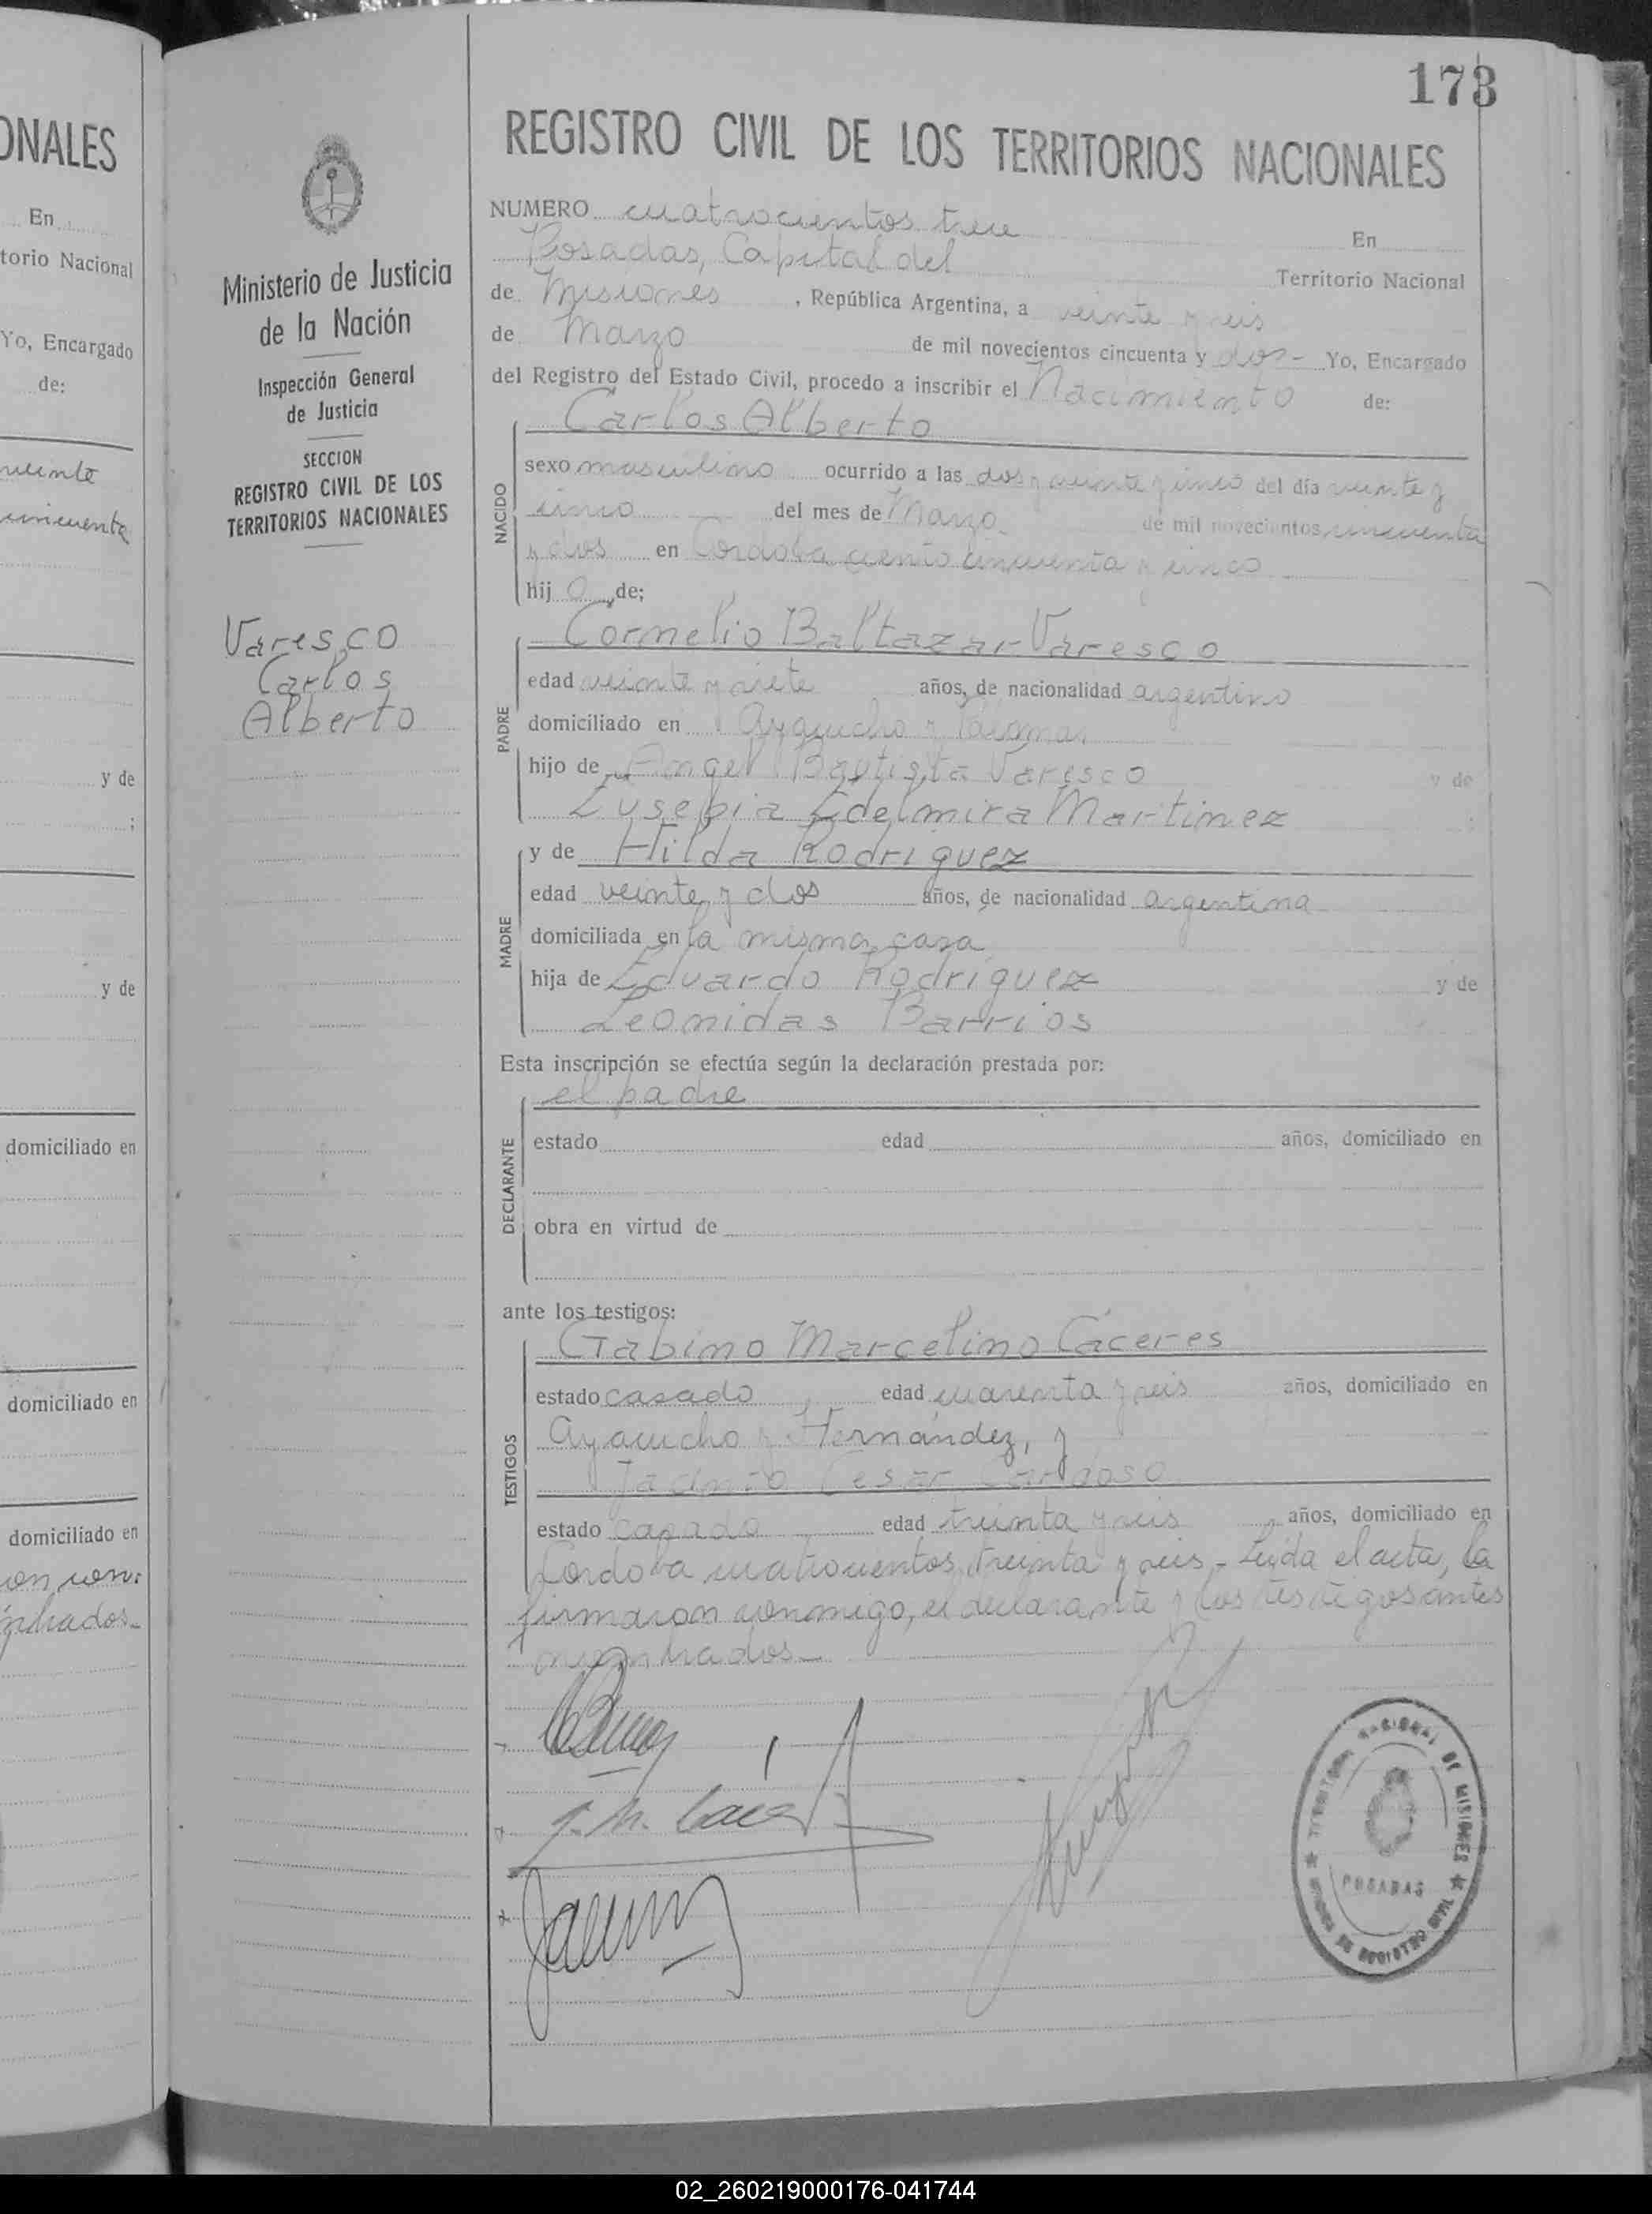 173
ONALES
En
torio Nacional
Yo, Encargado
de:
veinte
cincuenta
y de
;
y de
domiciliado en
domiciliado en
domiciliado en
Ministerio de Justicia
de la Nación
Inspección General
de Justicia
SECCION
REGISTRO CIVIL DE LOS
TERRITORIOS NACIONALES
Varesco
Carlos
Alberto
REGISTRO CIVIL DE LOS TERRITORIOS NACIONALES
NUMERO cuatrocientos trece En
Posadas, Capital del Territorio Nacional
de Misiones, República Argentina, a veinte y seis
de Marzo de mil novecientos cincuenta y dos - Yo, Encargado
del Registro del Estado Civil, procedo a inscribir el Nacimiento de:
Carlos Alberto
NACIDO
sexo masculino ocurrido a las dos y veinte y cinco del día veinte y
cinco del mes de Marzo de mil novecientos cincuenta
y dos en Cordoba ciento cincuenta y cinco
hij o de;
Cornelio Baltazar Varesco
PADRE
edad veinte y siete años, de nacionalidad argentino
domiciliado en Ayacucho y
hijo de Angel Bautista Varesco y de
Eusebia Edelmira Martinez ;
y de Hilda Rodriguez
MADRE
edad veinte y dos años, de nacionalidad argentina
domiciliada en la misma casa
hija de Eduardo Rodriguez y de
Leonidas Barrios
Esta inscripción se efectúa según la declaración prestada por:
el padre
DECLARANTE
estado edad años, domiciliado en
obra en virtud de
ante los testigos:
Gabino Marcelino Cáceres
TESTIGOS
estado casado edad cuarenta y seis años, domiciliado en
Ayacucho y Hernández, y
Jacinto Cesar Cardoso
estado casado edad treinta y seis años, domiciliado en
Cordoba cuatrocientos treinta y seis - Leída el acta, la
firmaron conmigo, el declarante y los testigos antes
nombrados -
TERRITORIO NACIONAL DE MISIONES
POSADAS
DE REGISTRO CIVIL
02_260219000176-041744